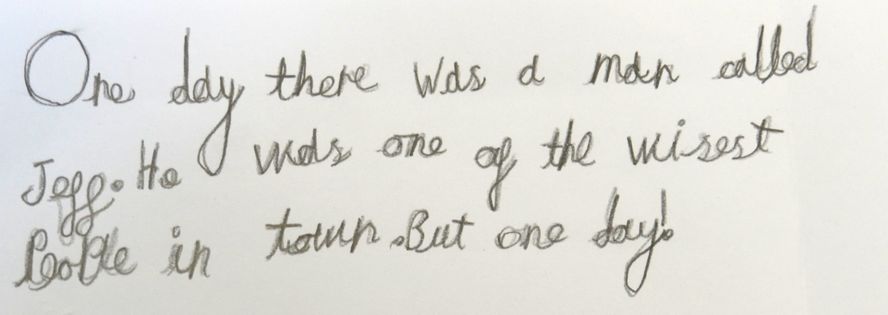 One day there was a man called
Jeff. He was one of the wisest
People in town. But one day!